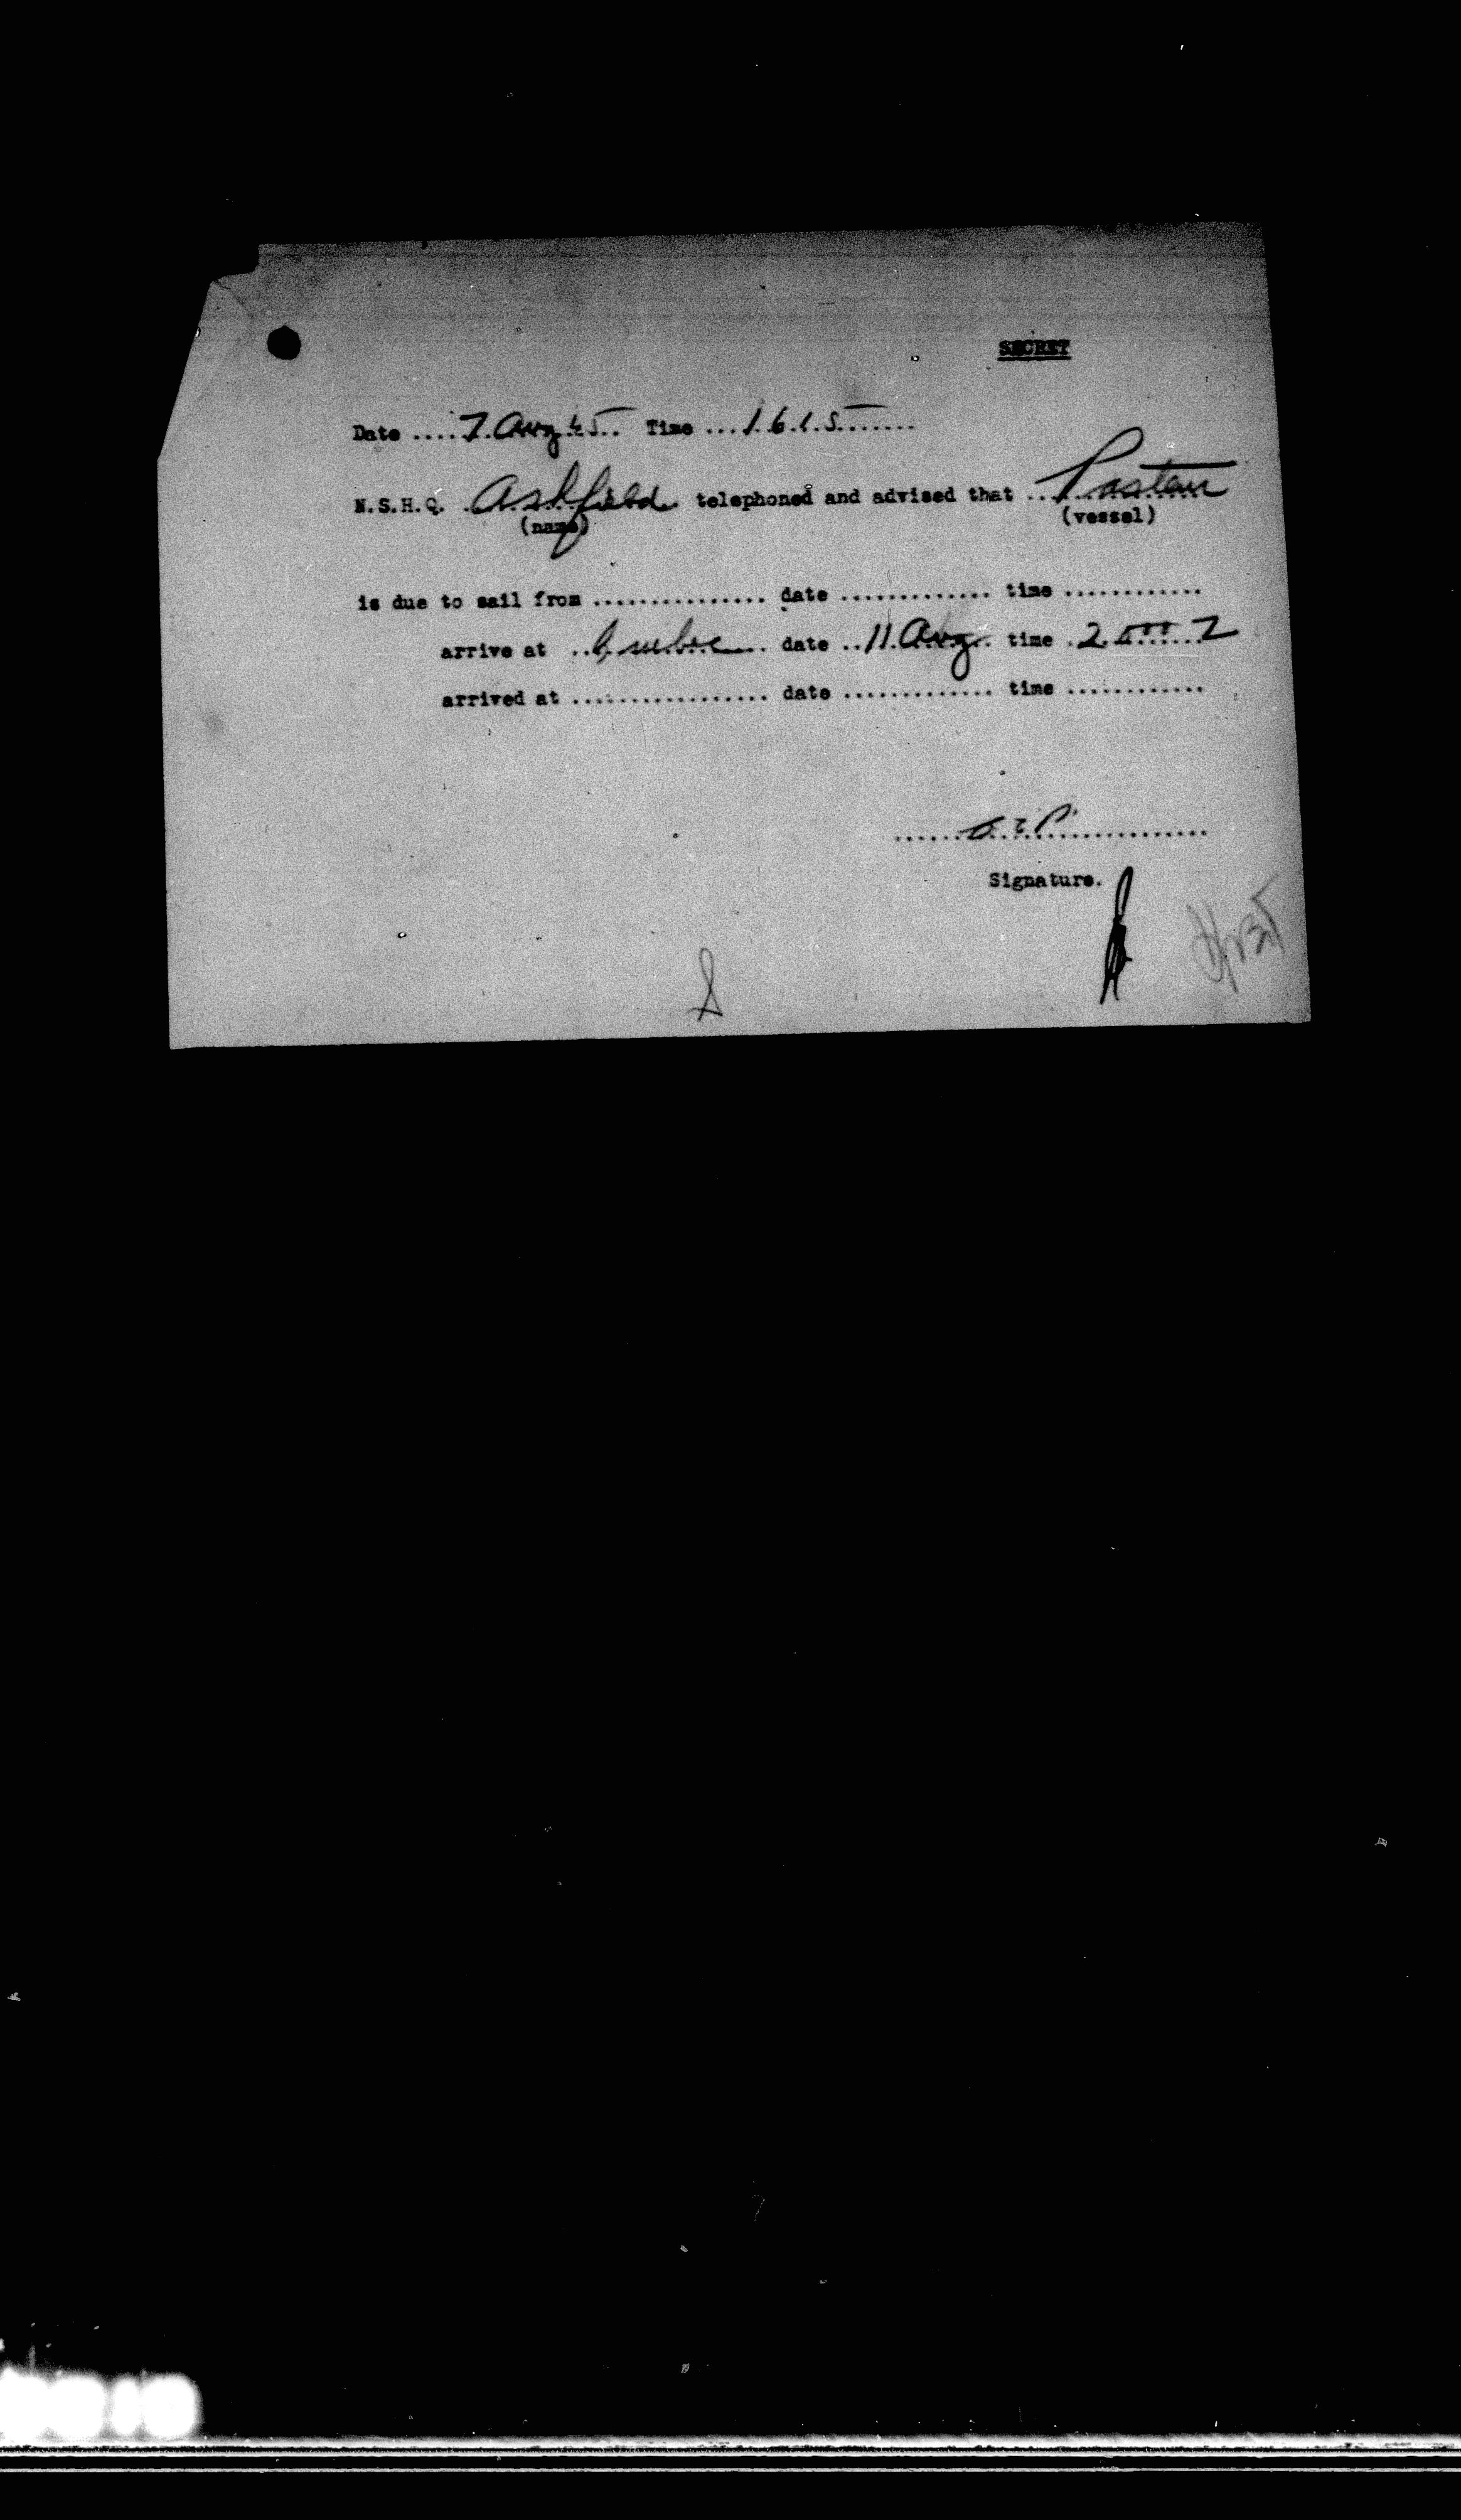 SECRET
Date .....7 Aug 45.. Time ...1615.......
N.S.H.Q. .Ashfield. telephoned and advised that ...Pasteur
(name) (vessel)
is due to sail from ............... date ............. time ............
arrive at ..Quebec.. date ..11 Aug.. time .2000 Z
arrived at ................. date ............. time ............
Signature.